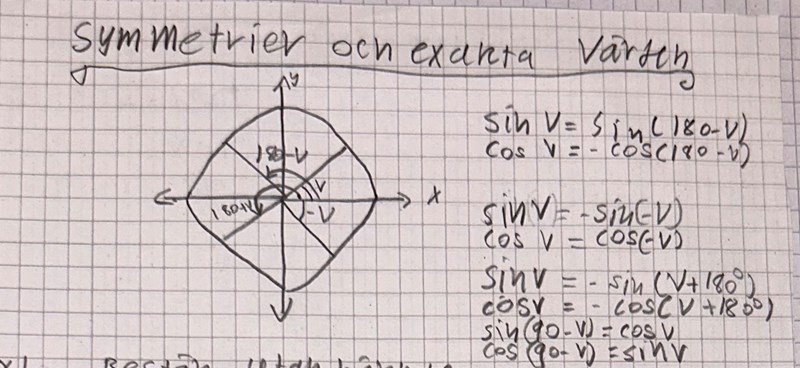 Symmetrier och exakta Värden
y
180-V
V
x
180+V
-V
sin V = sin(180-V)
cos V = - cos(180-V)
sin V = -sin(-V)
cos V = cos(-V)
sin V = - sin (V+180°)
cos V = - cos(V+180°)
sin(90-V) = cos V
cos(90-V) = sin V